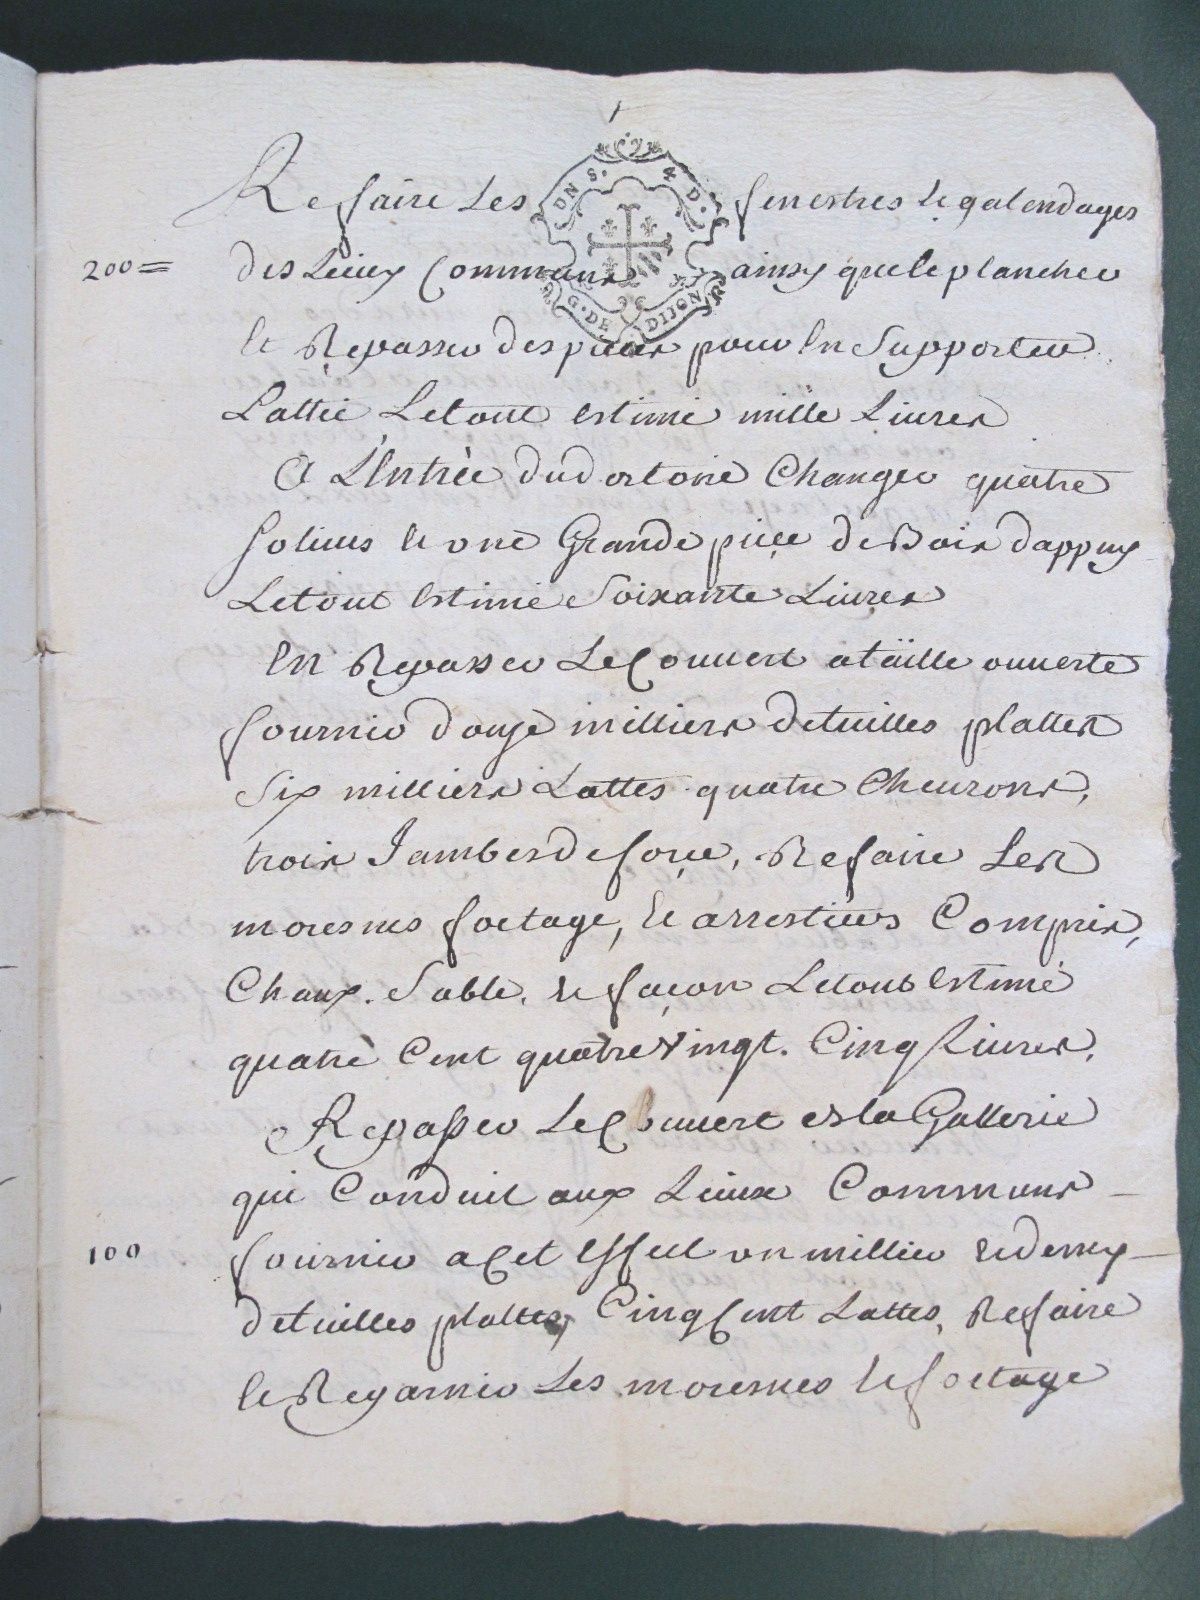 Refaire Les fenestres le galendages
200= des Lieux Communs ainsy que le plancher
Et Repasser des pieces pour En Supporter
L'attié Le tout Estimé mille Livres
A L'Entrée du dortoire Changer quatre
soliues et une Grande piece de Bois dappuy
Le tout Estimé Soixante Livres
En Repasser Le Couuert a taille ouuerte
fournir douze milliers de tuilles plattes
Six milliers Lattes quatre Cheurons,
trois Jambes de force, Refaire Les
moresnes foetage, et arrestiers Compris,
Chaux. Sable, et façon Le tout Estimé
quatre Cent quatre Vingt. Cinq Liures,
Repasser Le Couuert es la Gallerie
qui Conduit aux Lieux Communs
100 fournir a Cet Effect un millier et demy
de tuilles plattes, Cinq Cent Lattes, Refaire
et Regarnir Les moresnes et foetage
DNS. 4 D.
G. DE DIJON